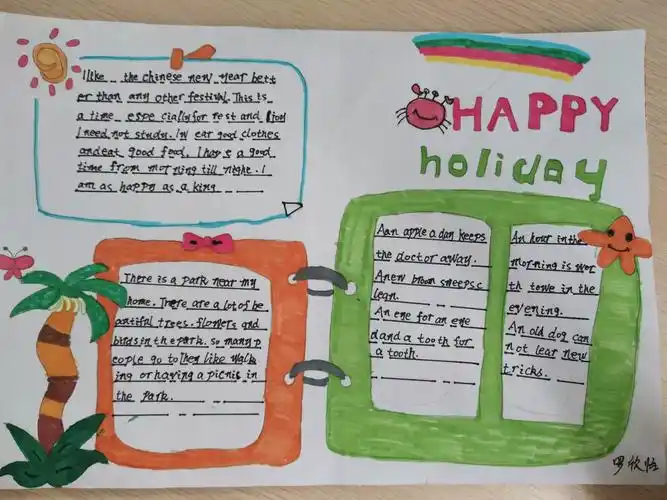 HAPPY
holiday
I like the chinese new year bett
er than any other festival. This is
a time espe cially for rest and joy
I need not study. In ear good clothes
and eat good food. I have a good
time from morning till night. I
am as happy as a king
There is a park near my
home. There are a lot of be
autiful trees. flowers and
birds in the park. so many p
eople go to then like walk
ing or having a picnis in
the park.
Aan apple a day keeps
the doctor away.
Anew broun sneeps c
lean.
An eye for an eye
dand a tooth for
a tooth.
An hour in the
morning is wor
th towe in the
evening.
An old dog can
not lear new
tricks.
罗欣怡